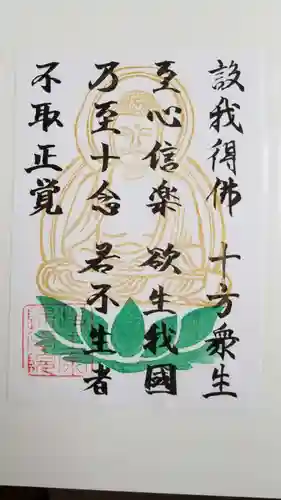 設我得佛 十方衆生
至心信楽 欲生我國
乃至十念 若不生者
不取正覚